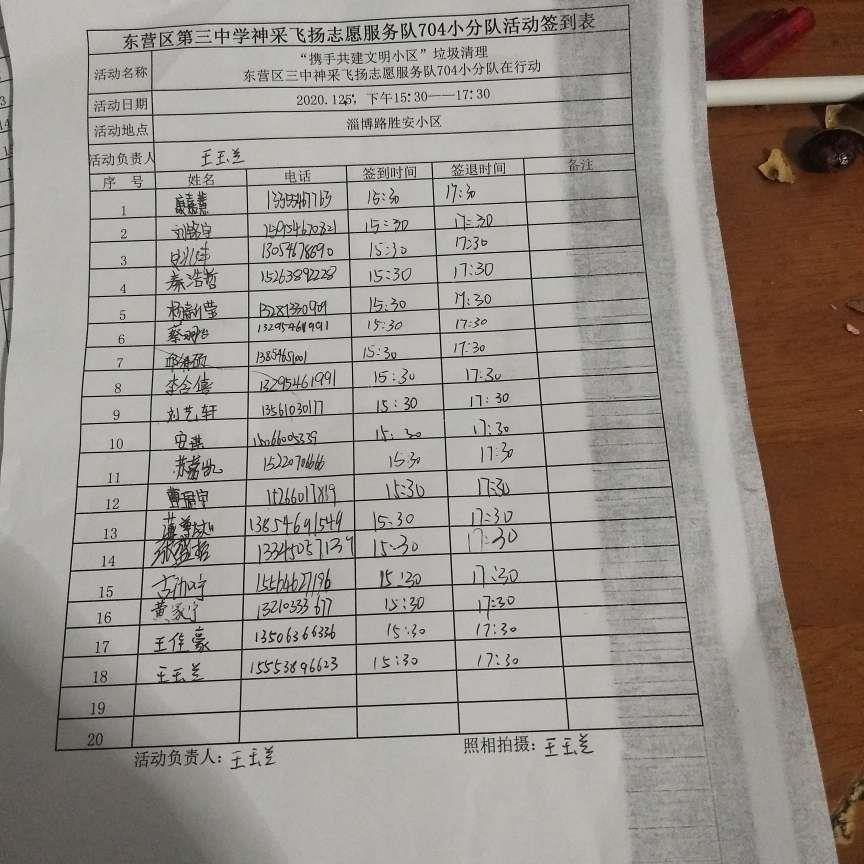 东营区第三中学神采飞扬志愿服务队704小分队活动签到表
活动名称 “携手共建文明小区”垃圾清理
东营区三中神采飞扬志愿服务队704小分队在行动
活动日期 2020.12.5, 下午15:30——17:30
活动地点 淄博路胜安小区
活动负责人 王玉兰
序 号 姓名 电话 签到时间 签退时间 备注
1 15:30 17:30
2 15:30 17:30
3 13054678690 15:30 17:30
4 秦浩哲 15263892228 15:30 17:30
5 13281330909 15:30 17:30
6 15:30 17:30
7 15:30 17:30
8 李合信 13295461991 15:30 17:30
9 刘艺轩 13561030117 15:30 17:30
10 安琪 15066005339 15:30 17:30
11 15220706666 15:30 17:30
12 15266017819 15:30 17:30
13 13854691549 15:30 17:30
14 13345057137 15:30 17:30
15 15564627196 15:30 17:30
16 黄家宁 13210333677 15:30 17:30
17 王佳豪 13506366336 15:30 17:30
18 王玉兰 15553896623 15:30 17:30
19
20
活动负责人：王玉兰 照相拍摄：王玉兰